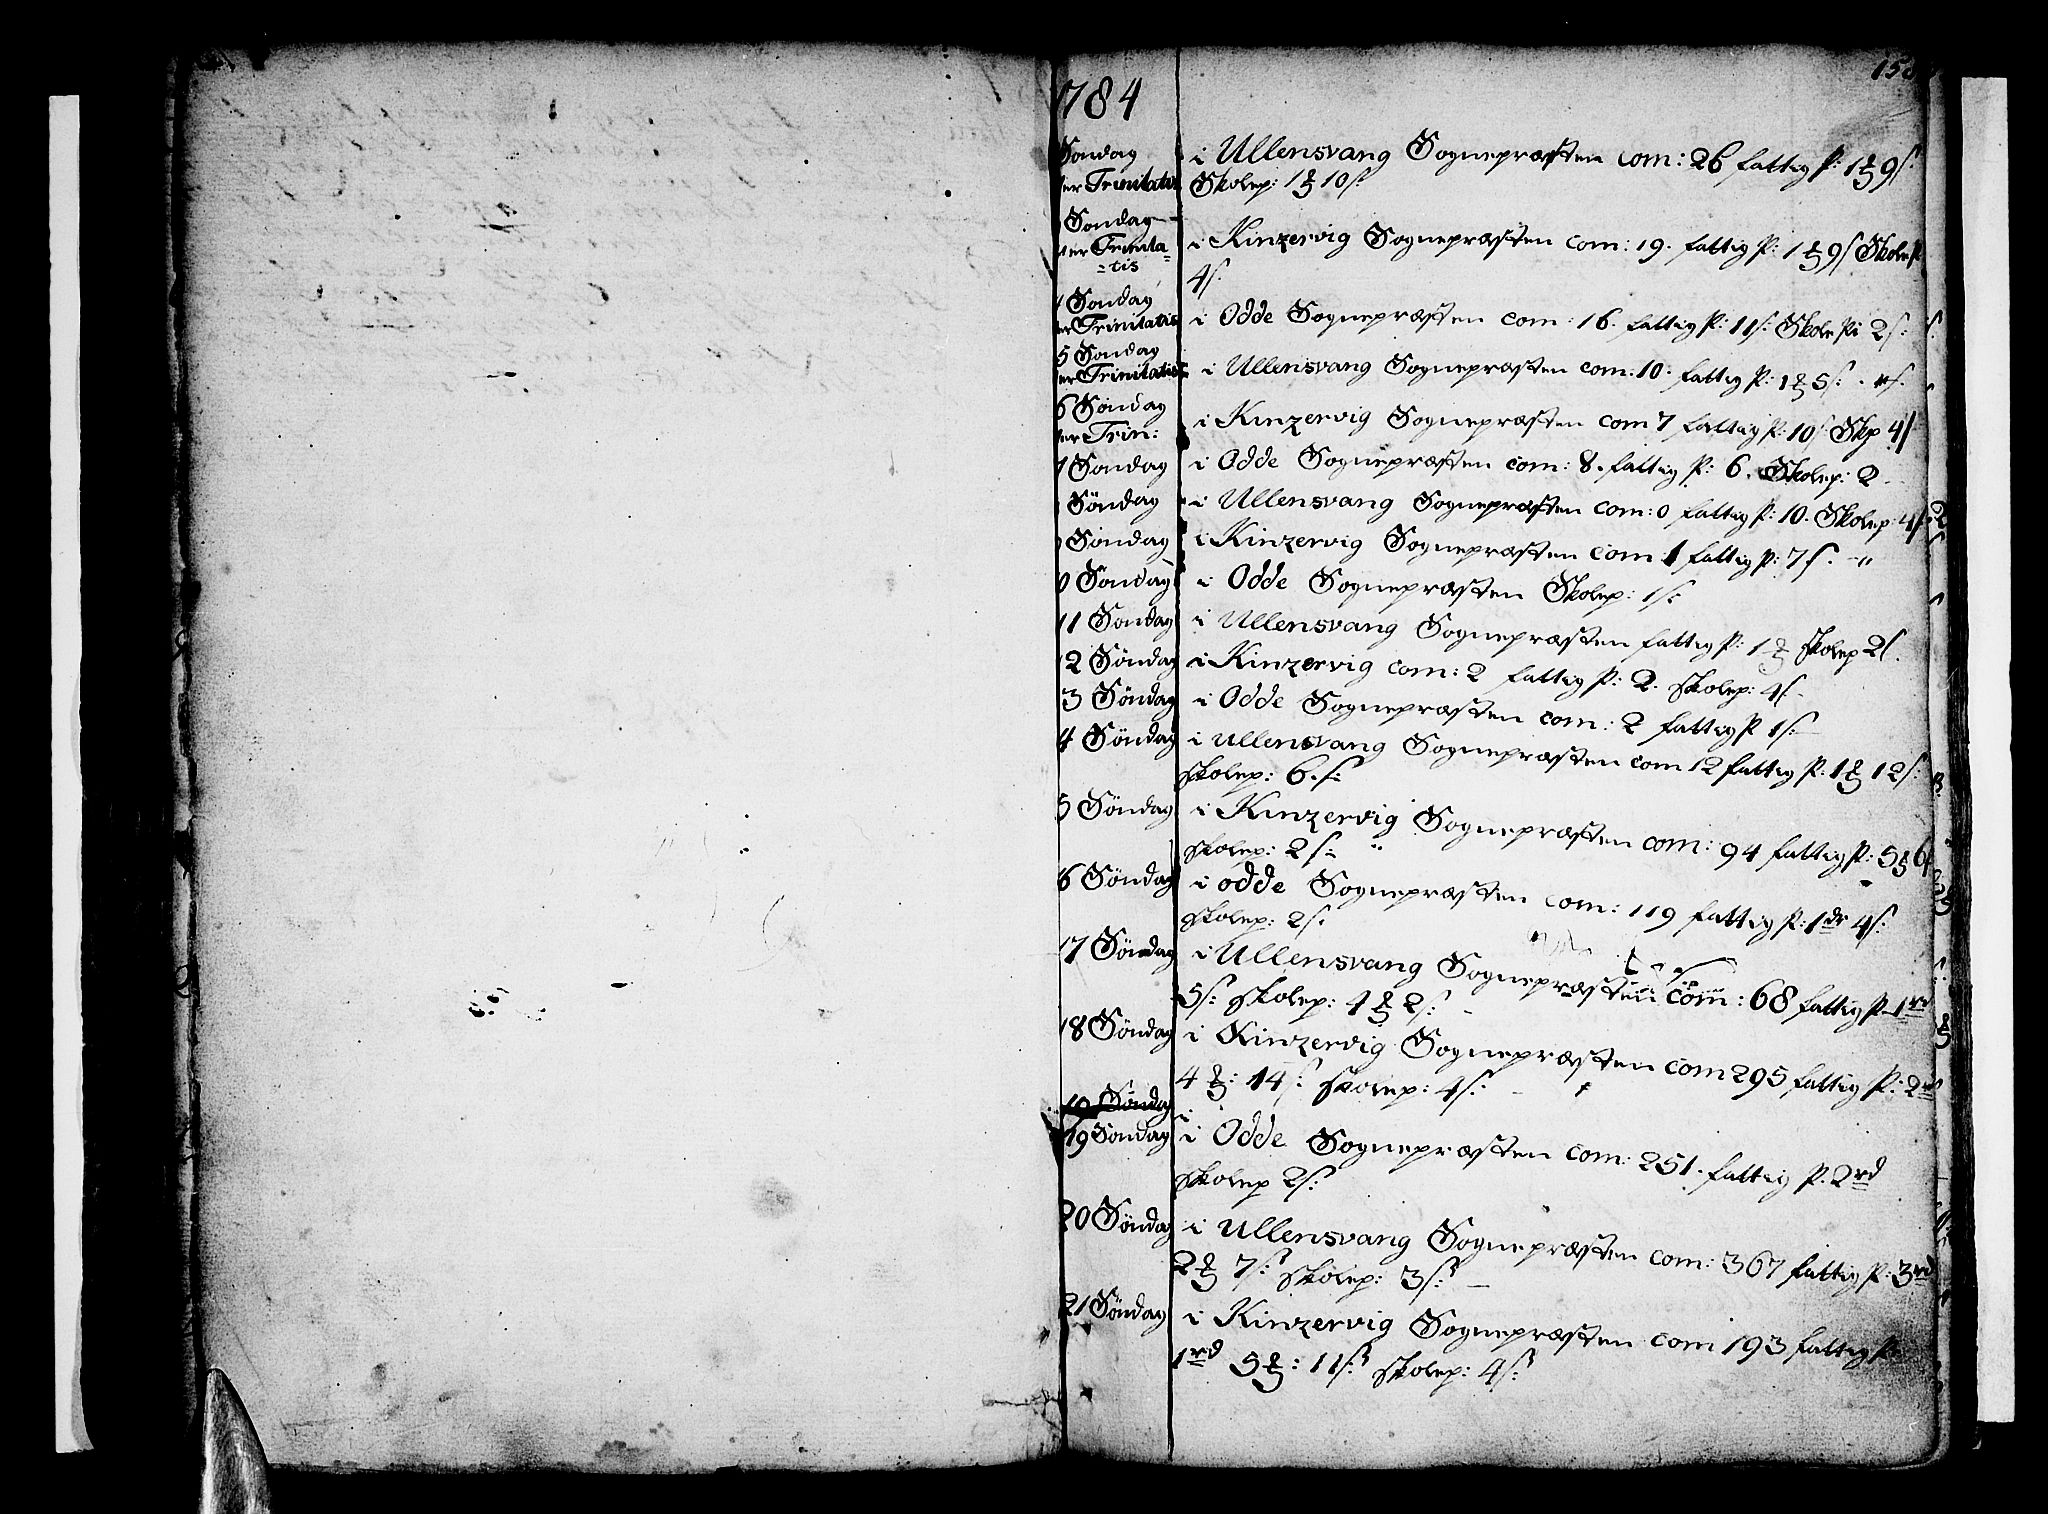 1784
Søndag i Ullensvang Sognepræsten com: 26 fattig P: 1 ℔ 9 s:
Trinitatis Skolep: 1 ℔ 10 s:
Søndag
Trinita= i Kinzervig Sognepræsten com: 19. fattig P: 1 ℔ 9 s Skole P
=tis 4 s.
Søndag
Trinitatis i Odde Sognepræsten com: 16. fattig P: 11 s: Skole P: 2 s:
5 Søndag
Trinitatis i Ullensvang Sognepræsten com: 10. fattig P: 1 ℔ 5 s:
6 Søndag
Trin: i Kinzervig Sognepræsten com 7 fattig P: 10 s Skp 4 s
Søndag i Odde Sognepræsten com: 8. fattig P: 6. Skolep: 2
Søndag i Ullensvang Sognepræsten com: 0 fattig P: 10. Skolep: 4 s:
Søndag i Kinzervig Sognepræsten com: 1 fattig P: 7 s. - "
0 Søndag i Odde Sognepræsten Skolep: 1 s:
11 Søndag i Ullensvang Sognepræsten fattig P: 1 ℔ Skolep 2 s.
12 Søndag i Kinzervig com: 2 fattig P: 2. skolep: 4 s -
3 Søndag i Odde Sognepræsten com: 2 fattig P 1 s:
4 Søndag i Ullensvang Sognepræsten com 12 fattig P: 1 ℔ 12 s:
skolep: 6. s:
5 Søndag i Kinzervig Sognepræsten com: 94 fattig P: 5 ℔ 6 s
skolep: 2 s: "
6 Søndag i odde Sognepræsten com: 119 fattig P: 1 dr 4 s:
skolep: 2 s.
17 Søndag i Ullensvang Sognepræsten com: 68 fattig P. 1 rd
5 s: skolep: 4 ℔ 2 s: -
18 Søndag i Kinzervig Sognepræsten com 295 fattig P: 2 rd
4 ℔: 14 s: skolep: 4 s: -
19 Søndag
19 Søndag i Odde Sognepræsten com: 251. fattig P. 2 rd
skolep 2 s:
20 Søndag i Ullensvang Sognepræsten com: 367 fattig P: 3 rd
2 ℔ 7 s: skolep: 3 s: -
21 Søndag i Kinzervig Sognepræsten com 193 fattig P:
1 rd 5 ℔: 11 s: skolep: 4 s: